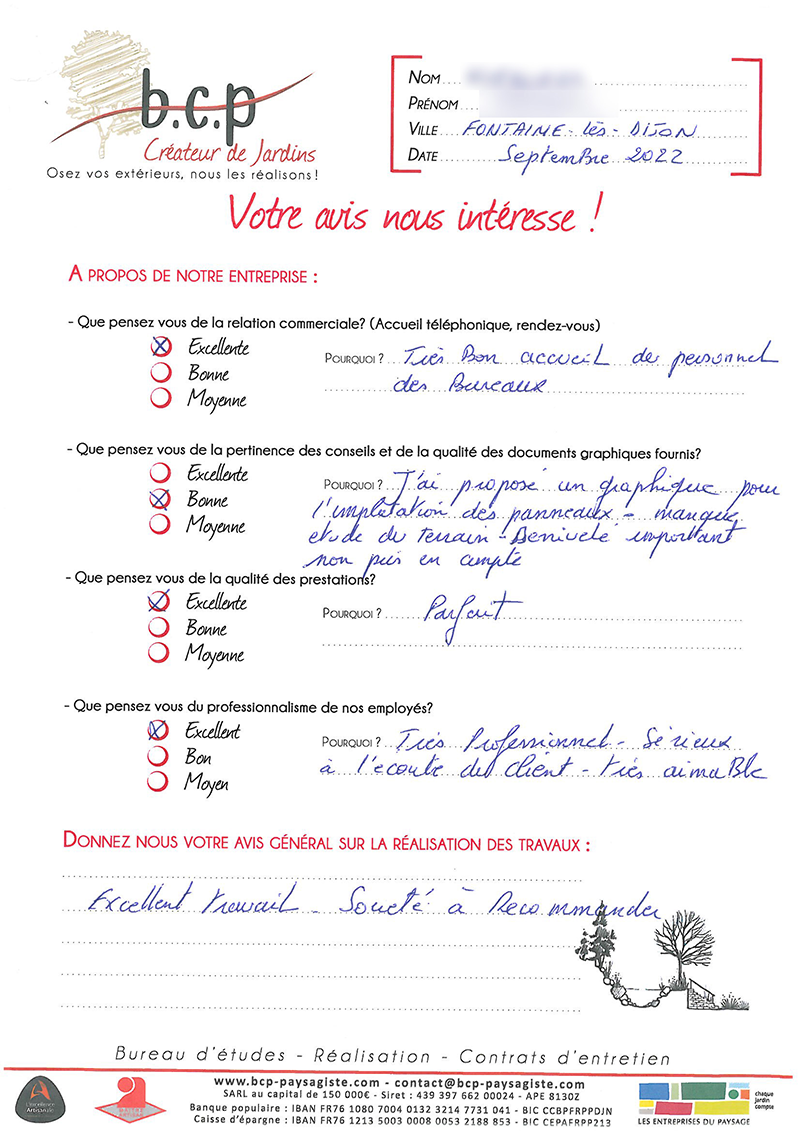 b.c.p
Créateur de Jardins
Osez vos extérieurs, nous les réalisons !
NOM
PRÉNOM
VILLE FONTAINE-lès-DIJON
DATE Septembre 2022
Votre avis nous intéresse !
A PROPOS DE NOTRE ENTREPRISE :
- Que pensez vous de la relation commerciale? (Accueil téléphonique, rendez-vous)
Excellente
Bonne
Moyenne
POURQUOI ? Très Bon accueil de personnel
des Bureaux
- Que pensez vous de la pertinence des conseils et de la qualité des documents graphiques fournis?
Excellente
Bonne
Moyenne
POURQUOI ? J'ai proposé un graphique pour
l'implatation des panneaux - manque
etude du terrain - Denivelé important
non pris en compte
- Que pensez vous de la qualité des prestations?
Excellente
Bonne
Moyenne
POURQUOI ? Parfait
- Que pensez vous du professionnalisme de nos employés?
Excellent
Bon
Moyen
POURQUOI ? Très Professionnel - Sérieux
à l'ecoute du client - très aimaBle
DONNEZ NOUS VOTRE AVIS GÉNÉRAL SUR LA RÉALISATION DES TRAVAUX :
Excellent travail - Société à Recommander
Bureau d'études - Réalisation - Contrats d'entretien
www.bcp-paysagiste.com - contact@bcp-paysagiste.com
SARL au capital de 150 000€ - Siret : 439 397 662 00024 - APE 8130Z
Banque populaire : IBAN FR76 1080 7004 0132 3214 7731 041 - BIC CCBPFRPPDJN
Caisse d'épargne : IBAN FR76 1213 5003 0008 0053 2188 853 - BIC CEPAFRPP213
L'excellence
Artisanale
MAITRE ARTISAN
LES ENTREPRISES DU PAYSAGE
chaque
jardin
compte